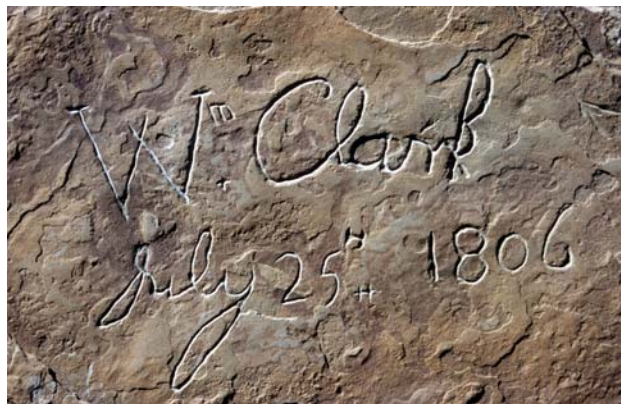 Wm. Clark
July 25th 1806